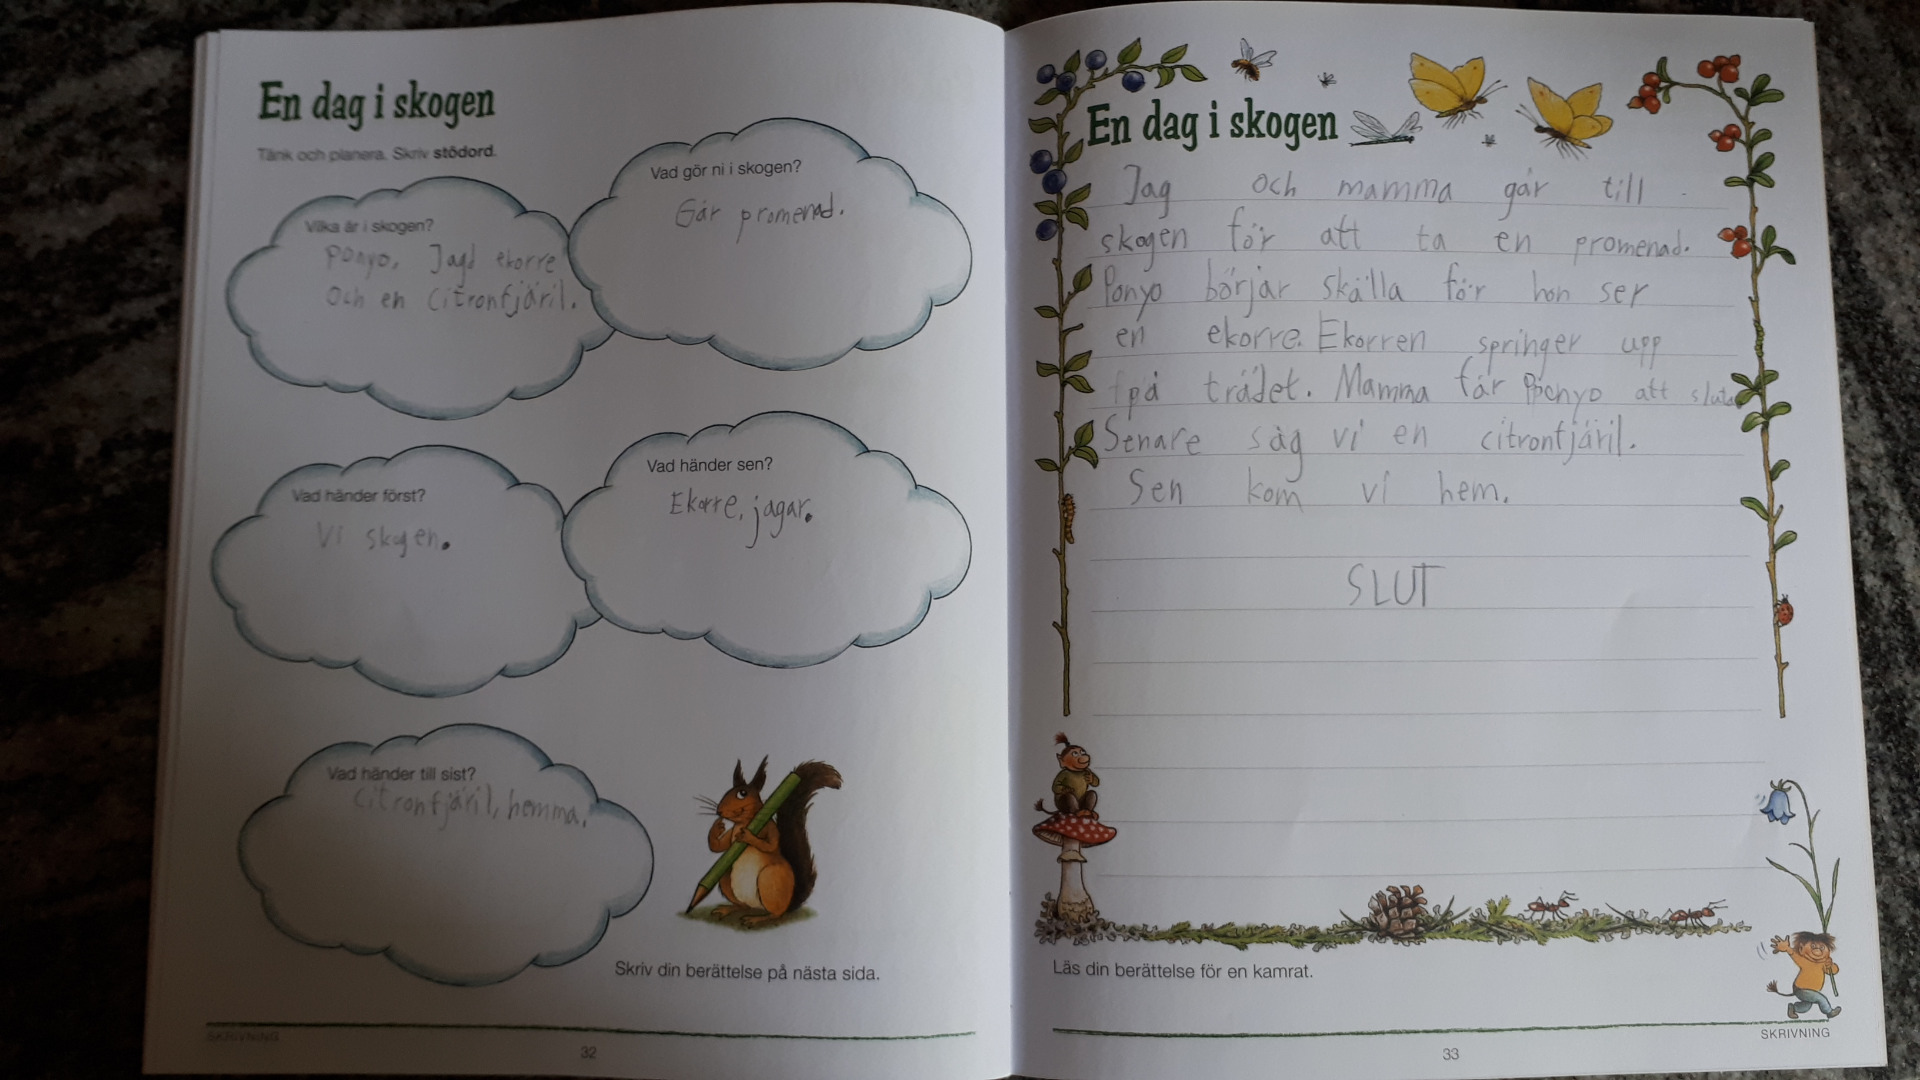 En dag i skogen
Tänk och planera. Skriv stödord.
Vilka är i skogen?
Ponyo, Jag, ekorre
Och en Citronfjäril.
Vad gör ni i skogen?
Går promenad.
Vad händer först?
Vi skogen.
Vad händer sen?
Ekorre, jagar.
Vad händer till sist?
Citronfjäril, hemma.
Skriv din berättelse på nästa sida.
SKRIVNING
32
En dag i skogen
Jag och mamma går till
skogen för att ta en promenad.
Ponyo börjar skälla för hon ser
en ekorre. Ekorren springer upp
på trädet. Mamma får Ponyo att sluta
Senare såg vi en citronfjäril.
Sen kom vi hem.
SLUT
Läs din berättelse för en kamrat.
SKRIVNING
33